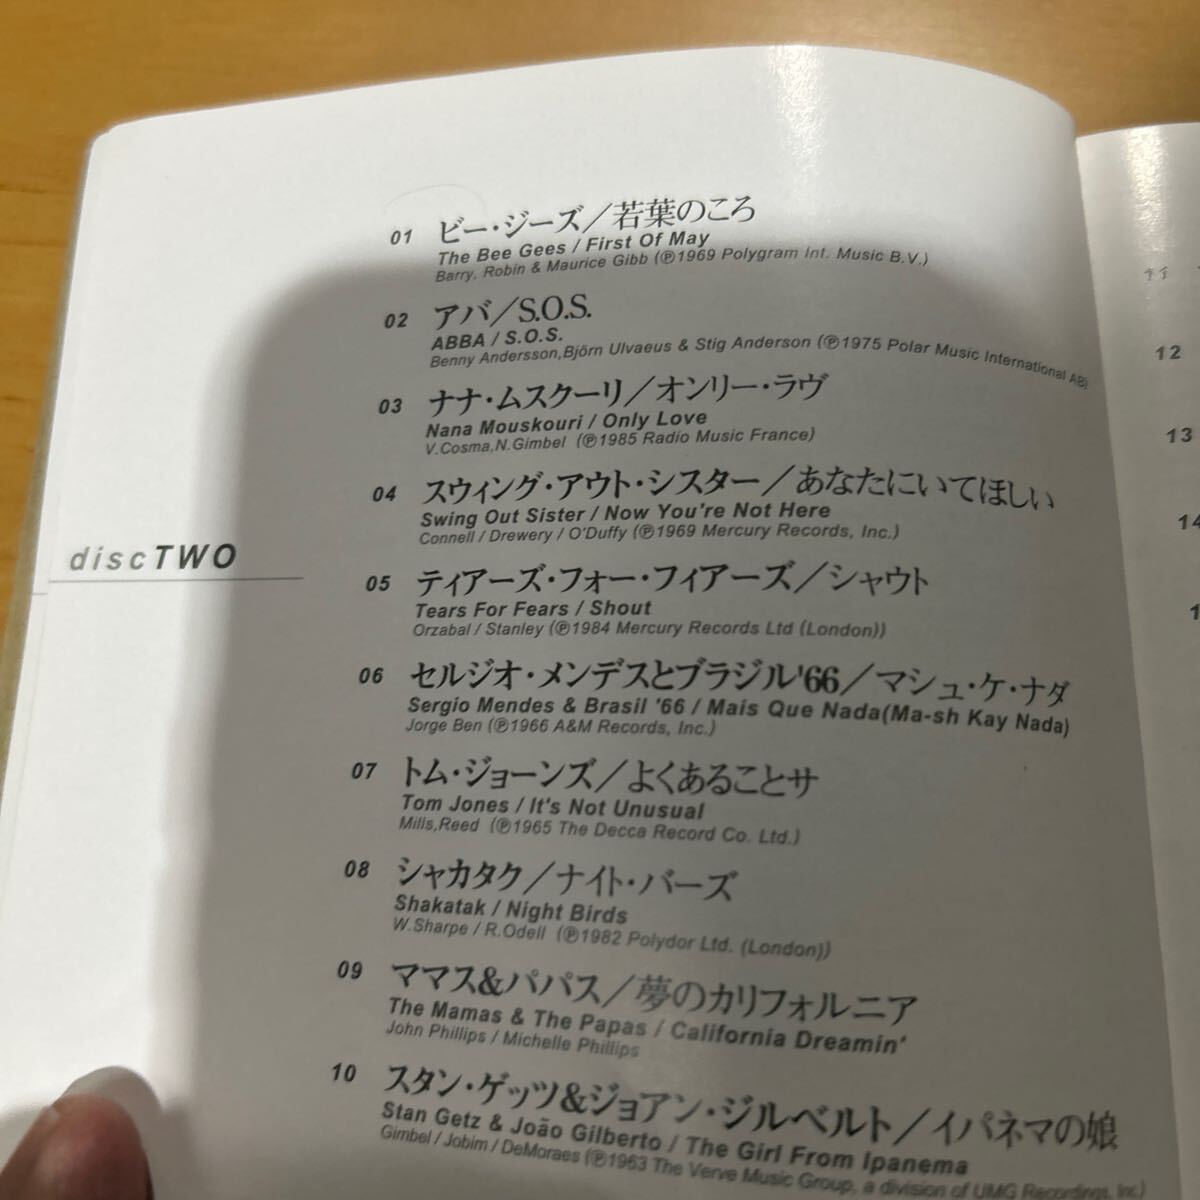 discTWO
01 ビー・ジーズ／若葉のころ
The Bee Gees / First Of May
Barry, Robin & Maurice Gibb (℗1969 Polygram Int. Music B.V.)
02 アバ／S.O.S.
ABBA / S.O.S.
Benny Andersson,Björn Ulvaeus & Stig Anderson (℗1975 Polar Music International AB)
03 ナナ・ムスクーリ／オンリー・ラヴ
Nana Mouskouri / Only Love
V.Cosma,N.Gimbel (℗1985 Radio Music France)
04 スウィング・アウト・シスター／あなたにいてほしい
Swing Out Sister / Now You're Not Here
Connell / Drewery / O'Duffy (℗1969 Mercury Records, Inc.)
05 ティアーズ・フォー・フィアーズ／シャウト
Tears For Fears / Shout
Orzabal / Stanley (℗1984 Mercury Records Ltd (London))
06 セルジオ・メンデスとブラジル'66／マシュ・ケ・ナダ
Sergio Mendes & Brasil '66 / Mais Que Nada(Ma-sh Kay Nada)
Jorge Ben (℗1966 A&M Records, Inc.)
07 トム・ジョーンズ／よくあることサ
Tom Jones / It's Not Unusual
Mills,Reed (℗1965 The Decca Record Co. Ltd.)
08 シャカタク／ナイト・バーズ
Shakatak / Night Birds
W.Sharpe / R.Odell (℗1982 Polydor Ltd. (London))
09 ママス&パパス／夢のカリフォルニア
The Mamas & The Papas / California Dreamin'
John Phillips / Michelle Phillips
10 スタン・ゲッツ&ジョアン・ジルベルト／イパネマの娘
Stan Getz & João Gilberto / The Girl From Ipanema
Gimbel / Jobim / DeMoraes (℗1963 The Verve Music Group, a division of UMG Recordings, Inc)
11
12
13
14